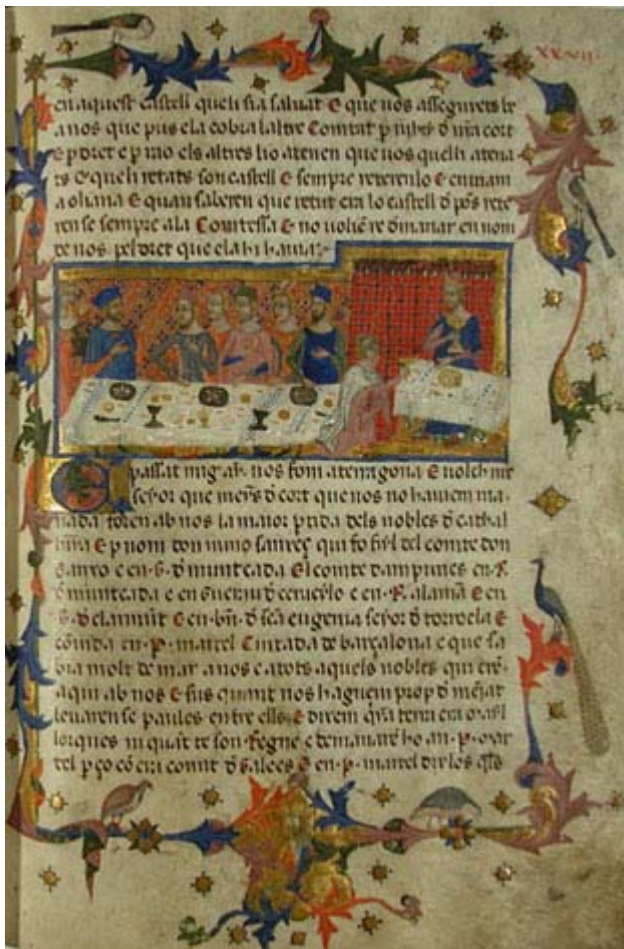 XXVII
en aquest castell quels sia saluat E que nos assegurets be
a nos que pus ela cobra laltre Comtat p iuhii d nra cort
E p dret e p rao els altres ho atenen que nos quels atena
ts E quels retats son castell E sempre reterenlo E entram
a oliana E quan saberen que retut era lo castell d pos rete
ren se sempre ala Comtessa E no uolie re dmanar en nom
de nos pel dret que ela hi hauia
E passat mig an nos fom a terragona E uolch nre
seyor que meys d cort que nos no hauem ma
nada foren ab nos la maior ptida dels nobles d cathal
unia E p nom don nuno sanxes qui fo fiyl del comte don
sanxo e en .G. d muntcada El comte dampuries en .R.
d muntcada e en Guerau d cerueylo e en .R. alama E en
.G. d claramut E en bn. d sca eugenia seyor d torroela E
couida en .P. martel Ciutada de barçalona e que sa
bia molt de mar a nos e a tots aquels nobles qui eren
aqui ab nos E sus quant nos haguem prop d meiat
leuaren se paules entre ells E dixem qna terra era mayl
lorques ni quat te son regne e demanare ho an .P. mar
tel p ço co era comit d galees E en .P. martel dix los